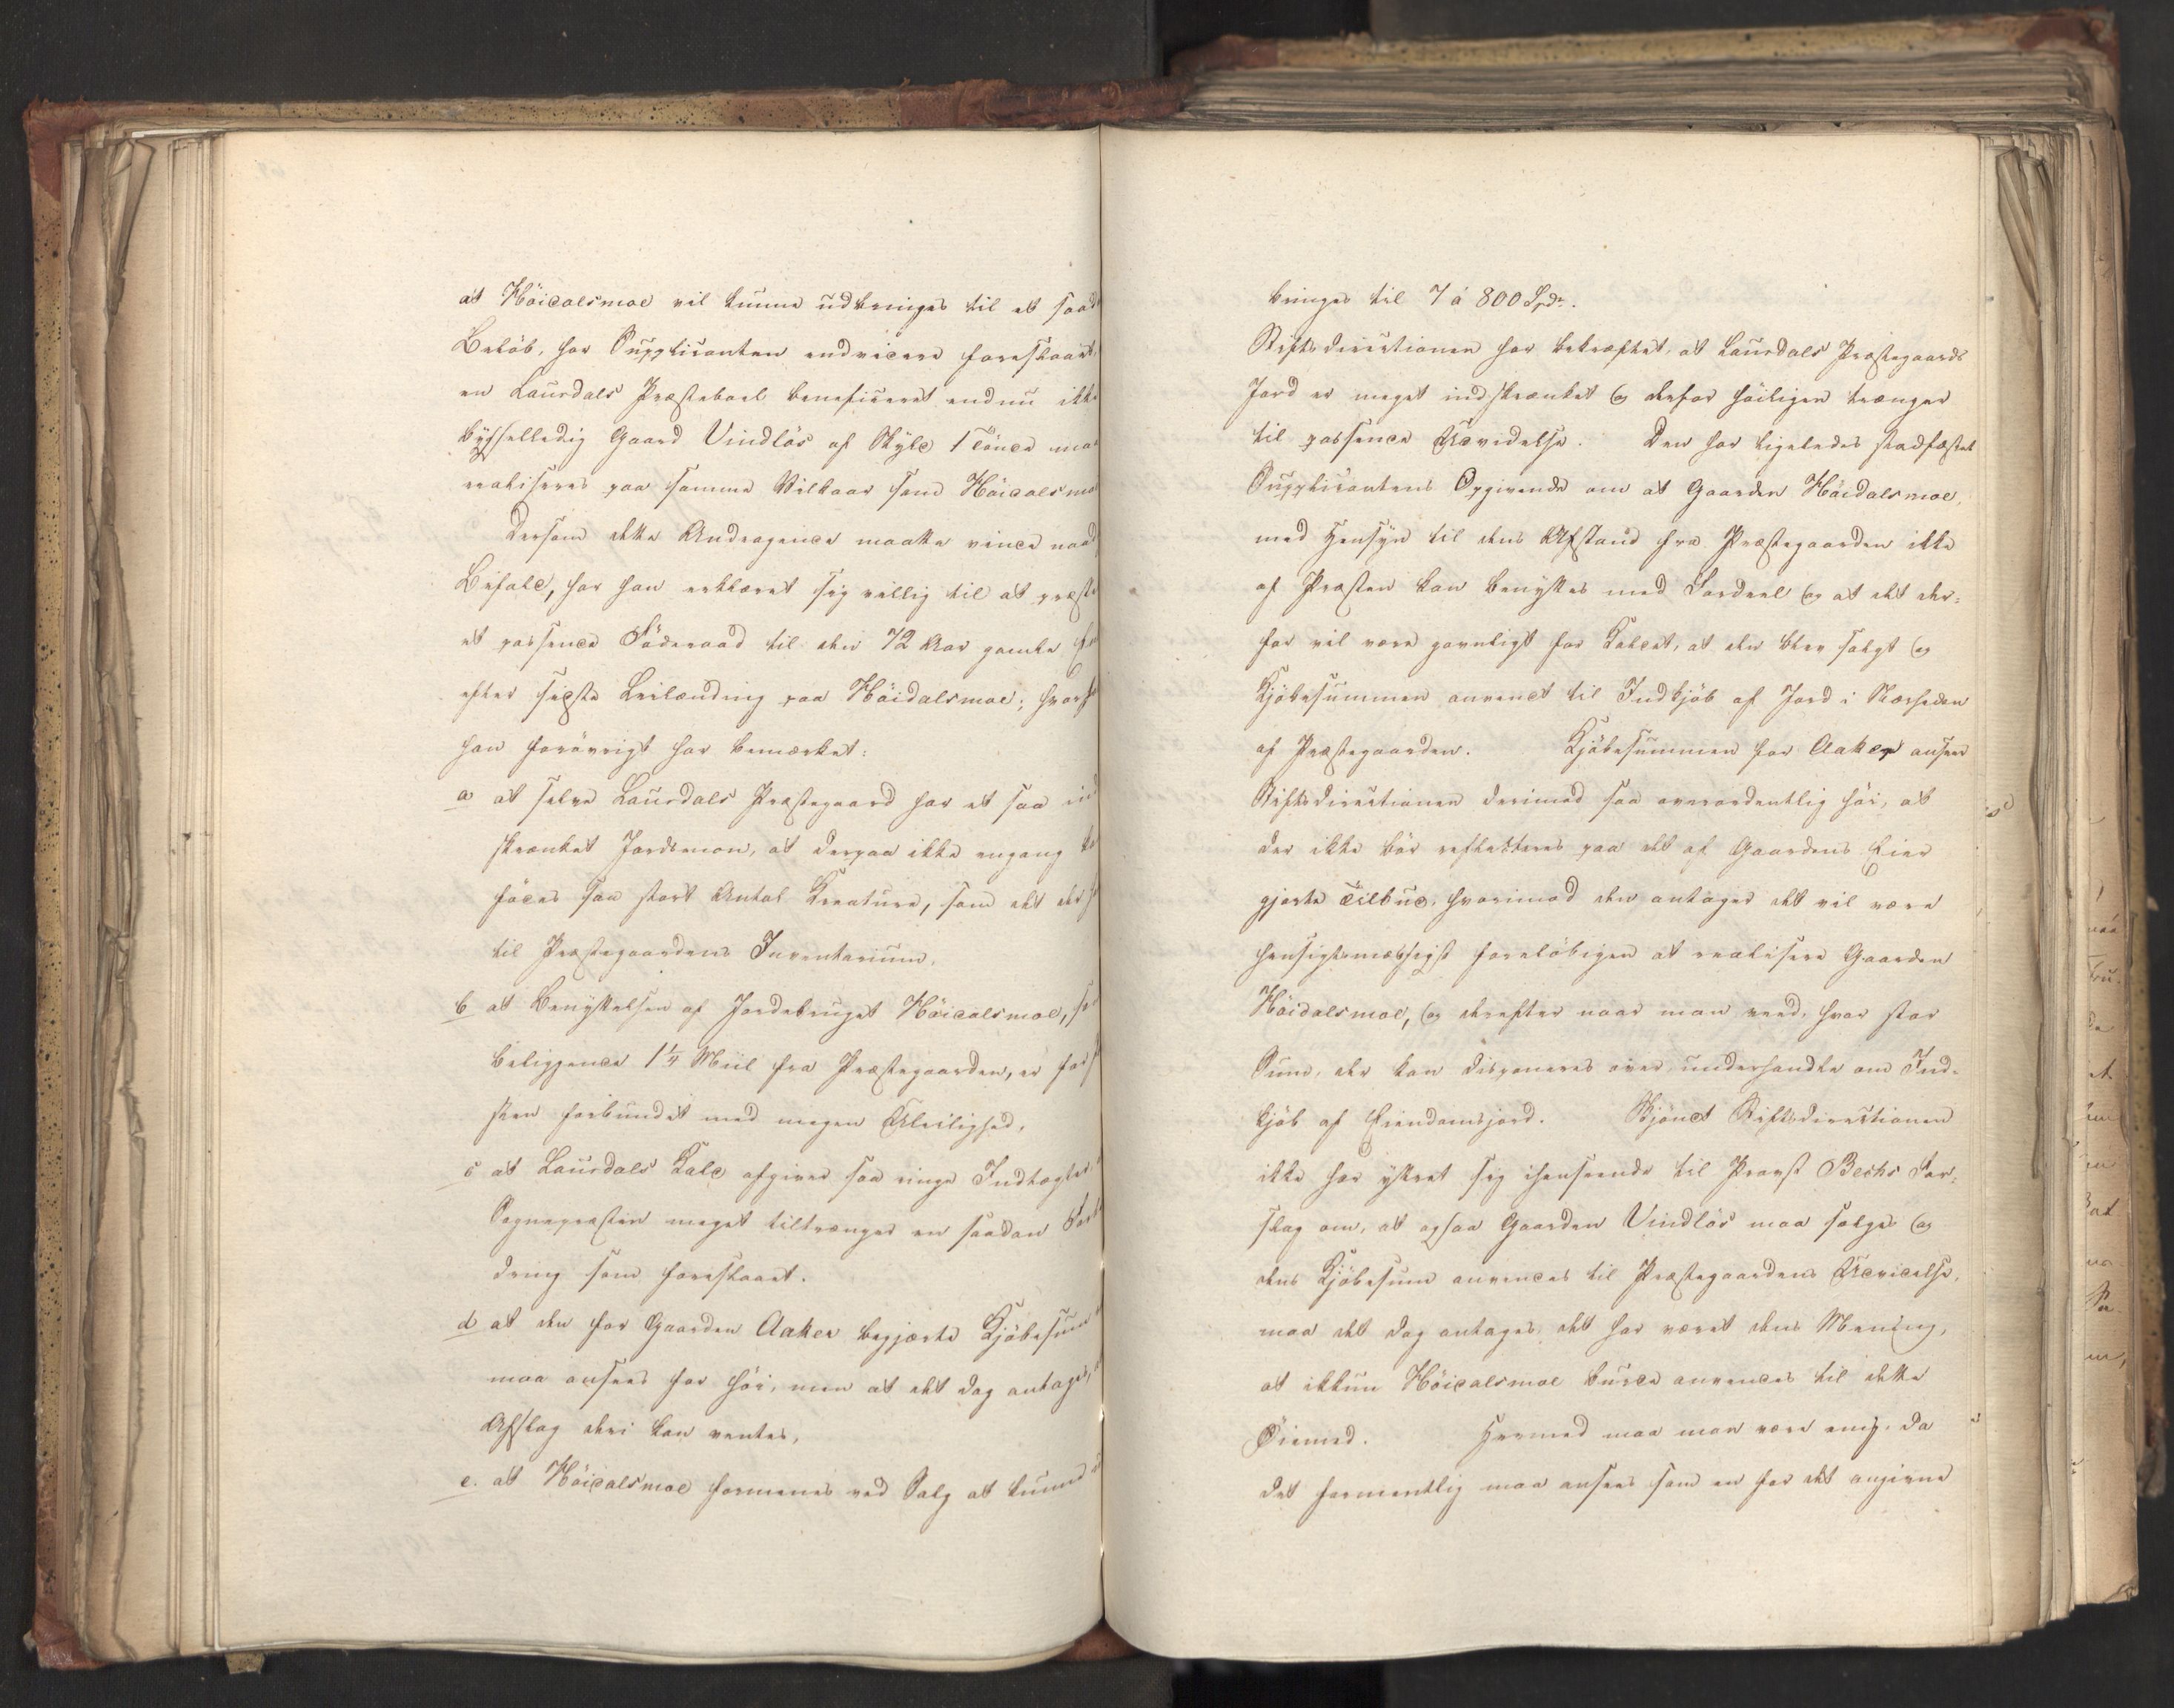 at Höidalsmoe vil kunne udbringes til et saad
Beløb, har Supplicanten endvidere foreslaaet,
en Laurdals Præstebord beneficeret endnu ikke
byxelledig Gaard Vindlös af Skyld 1 Tönde maa
realiseres paa samme Vilkaar som Höidalsmoe
Dersom dette Andragende maatte vinde naad
Bifald, har han erklæret sig villig til at præste
et passende Föderaad til den 72 Aar gamle
efter sidste Leilænding paa Höidalsmoe; hvorh
han forövrigt har bemærket:
a at selve Laurdals Præstegaard har et saa ind
skrænket Jordsmon, at derpaa ikke engang
födes saa stort Antal Kreature, som det
til Præstegaardens Inventarium,
b at Benyttelsen af Jordebruget Höidalsmoe,
beliggende 1¼ Miil fra Præstegaarden, er for
sten forbundet med megen Uleilighed,
c at Laurdals Kald afgiver saa ringe Indtægter,
Sognepræsten meget tiltrænger en saadan
dring som foreslaaet.
d at den for Gaarden Aaker begjærte Kjöbesum
maa ansees for höi, men at det dog antages,
Afslag deri kan ventes,
e. at Höidalsmoe formenes ved Salg at kunne
bringes til 7 á 800 Spdr.
Stiftsdirectionen har bekræftet, at Laurdals Præstegaards
Jord er meget indskrænket og derfor höiligen trænger
til passende Udvidelse. Den har ligeledes stadfæstet
Supplicantens Opgivende om at Gaarden Höidalsmoe,
med Hensyn til dens Afstand fra Præstegaarden ikke
af Præsten kan benyttes med Fordeel og at det der-
for vil være gavnligt for Kaldet, at den blev solgt og
Kjöbesummen anvendt til Indkjöb af Jord i Nærheden
af Præstegaarden. Kjöbesummen for Aaker anseer
Stiftsdirectionen derimod saa overordentlig höi, at
der ikke bör reflecteres paa det af Gaardens Eier
gjorte Tilbud, hvorimod den antager det vil være
hensigtsmæssigst forelöbigen at realisere Gaarden
Höidalsmoe, og derefter naar man veed, hvor stor
Sum, der kan disponeres over, underhandle om Ind-
kjöb af Eiendomsjord. Skjöndt Stiftsdirectionen
ikke har yttret sig ihenseende til Provst Bechs For-
slag om, at ogsaa Gaarden Vindlös maa sælges og
dens Kjöbesum anvendes til Præstegaardens Udvidelse,
maa det dog antages, det har været dens Mening,
at ikkun Höidalsmoe burde anvendes til dette
Öiemed. Hermed maa man være enig, da
det formentlig maa ansees som en for det angivne